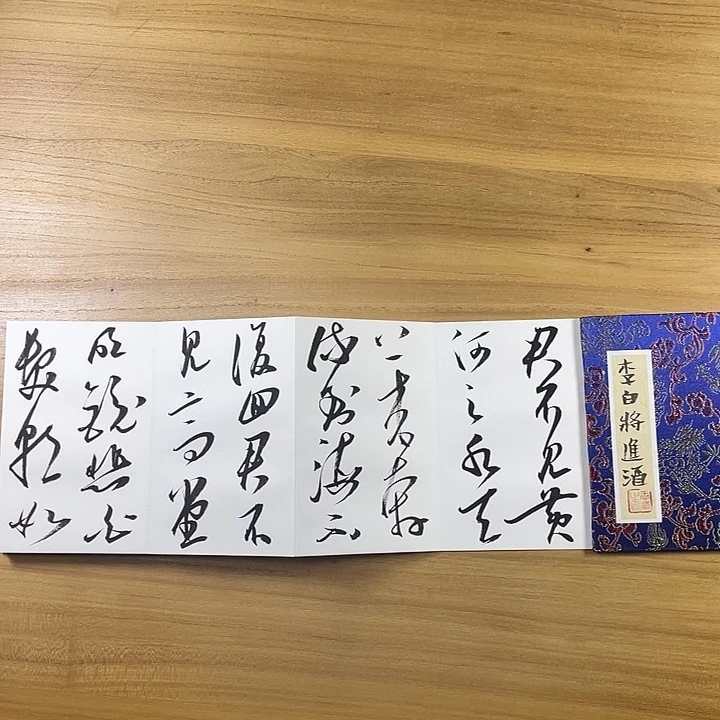 李白將進酒
君不見黃
河之水天
上來奔
流到海不
復回君不
見高堂
明鏡悲白
髮朝如